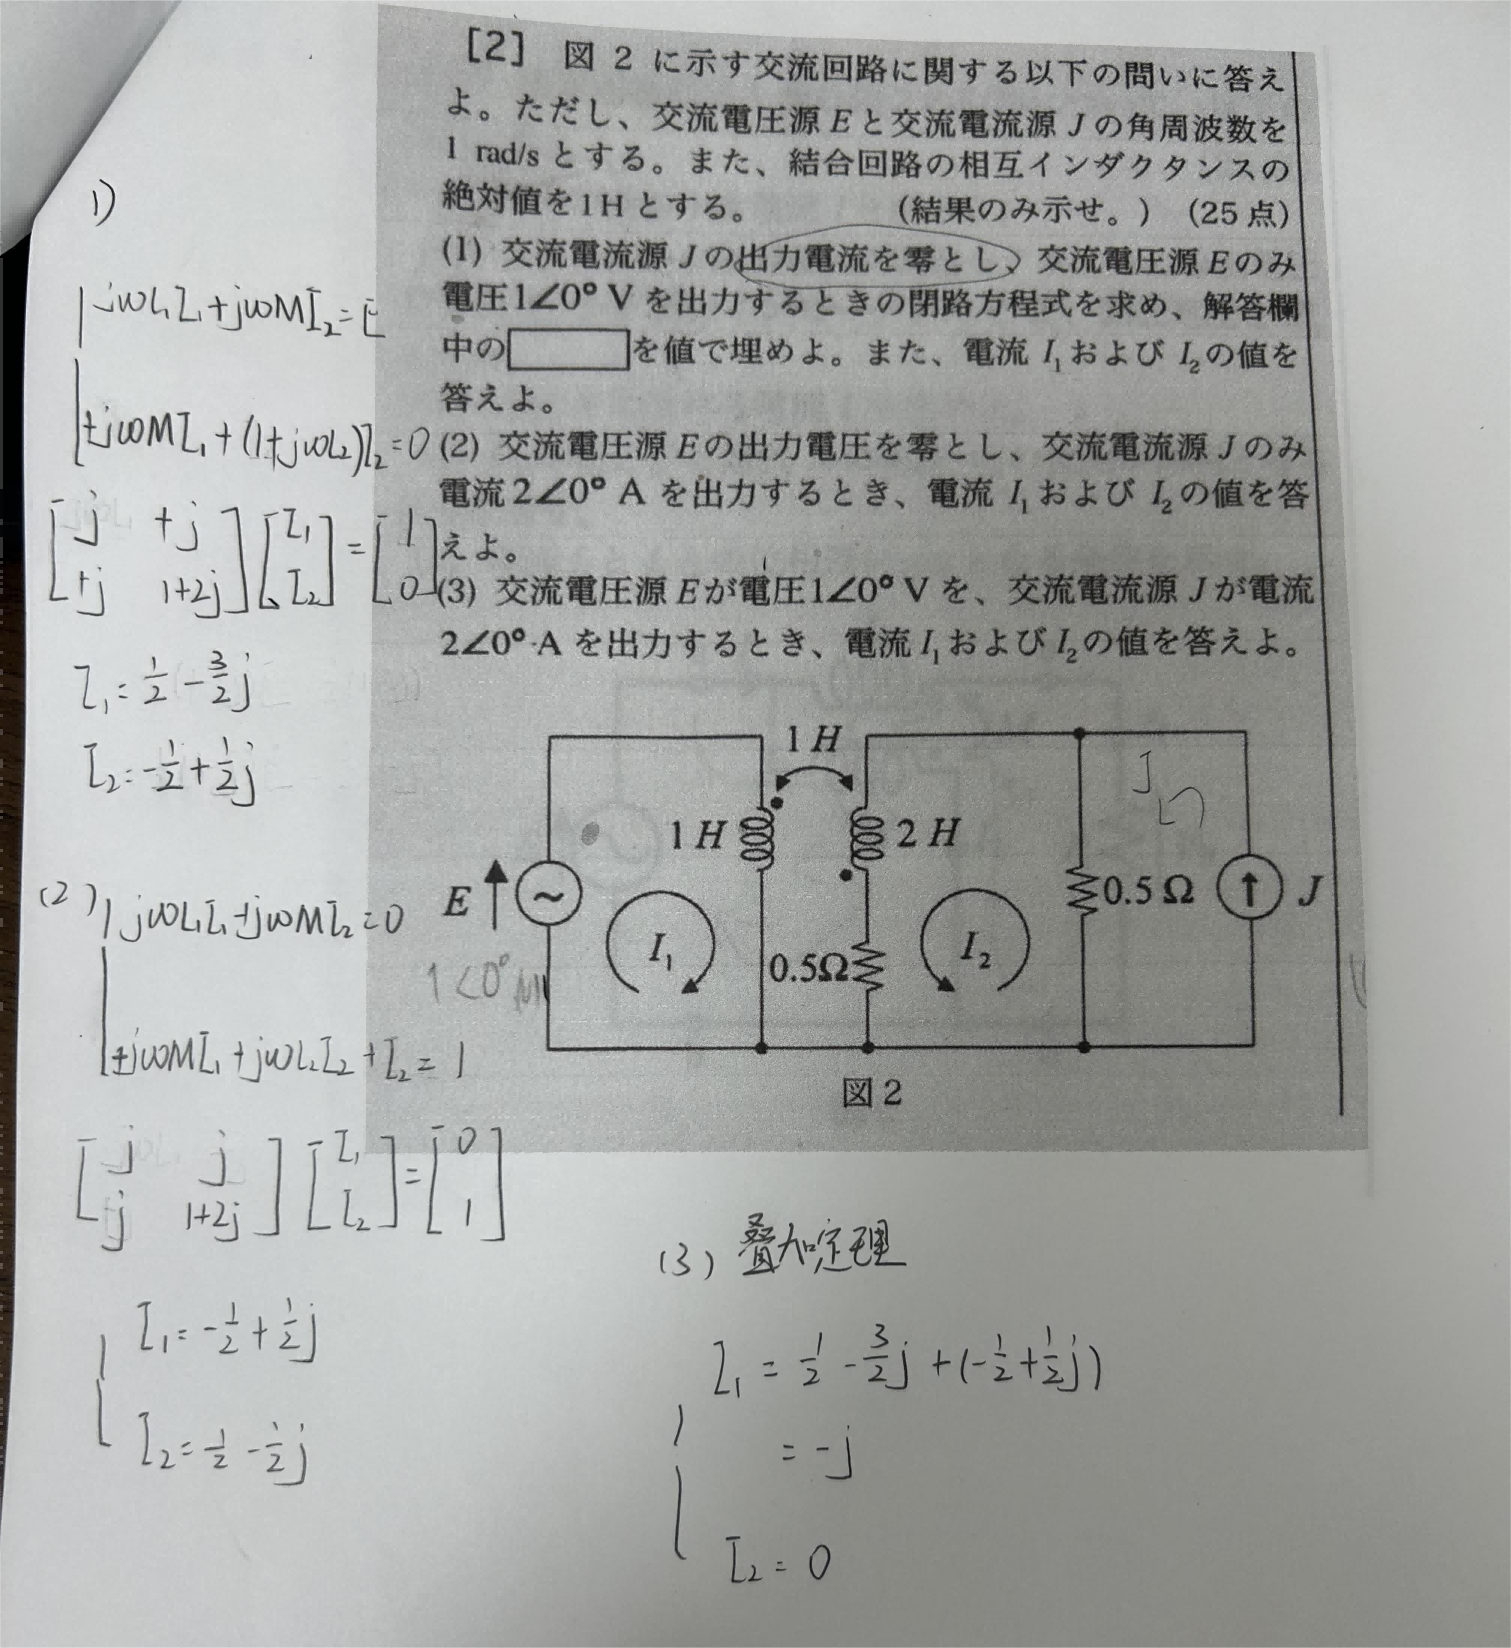 [2] 図 2 に示す交流回路に関する以下の問いに答え
よ。ただし、交流電圧源 E と交流電流源 J の角周波数を
1 rad/s とする。また、結合回路の相互インダクタンスの
絶対値を1Hとする。 (結果のみ示せ。) (25点)
(1) 交流電流源 J の出力電流を零とし、交流電圧源 E のみ
電圧1∠0° V を出力するときの閉路方程式を求め、解答欄
中の を値で埋めよ。また、電流 I₁ および I₂ の値を
答えよ。
(2) 交流電圧源 E の出力電圧を零とし、交流電流源 J のみ
電流 2∠0° A を出力するとき、電流 I₁ および I₂ の値を答
えよ。
(3) 交流電圧源 E が電圧1∠0° V を、交流電流源 J が電流
2∠0° A を出力するとき、電流 I₁ および I₂ の値を答えよ。
1 H
1 H
2 H
E
I₁
0.5Ω
I₂
0.5 Ω
J
J
1<0°
図 2
1)
jωL₁I₁+jωMI₂=E
+jωMI₁+(1+jωL₂)I₂=0
[j +j] [I₁] = [1]
[+j 1+2j] [I₂] [0]
I₁=1/2-3/2j
I₂=-1/2+1/2j
(2)
jωL₁I₁+jωMI₂=0
+jωMI₁+jωL₂I₂+I₂=1
[j j] [I₁] = [0]
[j 1+2j] [I₂] [1]
I₁=-1/2+1/2j
I₂=1/2-1/2j
(3) 叠加定理
I₁=1/2-3/2j+(-1/2+1/2j)
=-j
I₂=0